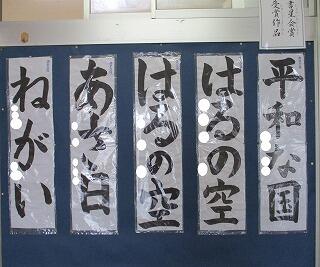 書星会賞
受賞作品
平和な国
はるの空
はるの空
ねがい